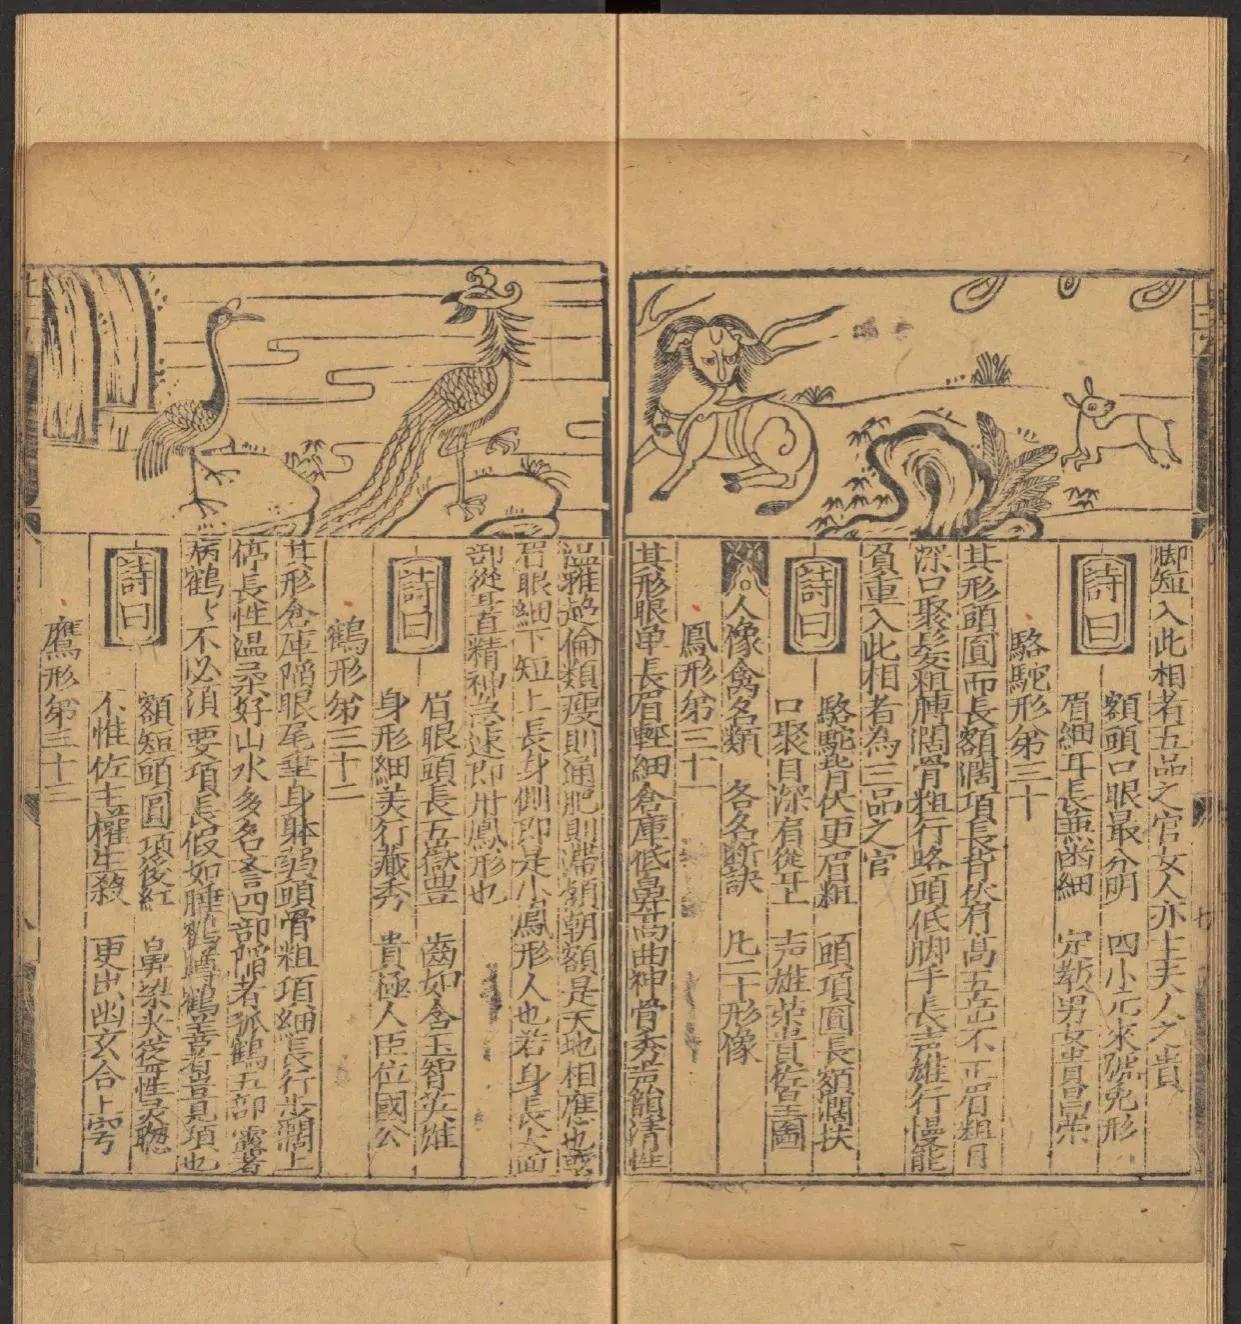 脚短入此相者五品之官女人亦主夫人之貴
詩曰
額頭口眼最分明　四小元來號兔形
眉細耳長兼齒細　定教男女貴昌榮
駱駝形第三十
其形頭圓而長額濶項長背伏有高五岳不正眉粗目
深口聚髮粗膊濶骨粗行路頭低脚手長声雄行慢能
負重入此相者為三品之官
詩曰
駱駝背伏更眉粗　頭項圓長額濶扶
口聚目深有從𤴓　声雄荣貴佐皇圖
人像禽名類　各名断訣　凢二十形像
鳳形第三十一
其形眼单長眉輕細倉庫低鼻高曲神骨秀声韻清性
溫雅過倫類瘦則通肥則滯頟朝額是天地相應也或
眉眼細下短上長身側即是小鳳形人也若身長大面
部從昔精神急速即卅鳳形也
詩曰
眉眼頭長五嶽豊　齒如含玉智英雄
身形細美行藏秀　貴極人臣位國公
鶴形第三十二
其形倉庫陷眼尾垂身躰弱頭骨粗項細長行步濶上
停長性温柔好山水多名言四部陷者孤鶴五部露者
病鶴〻不必須要項長假如睡鶴蹲鶴盖者豈見項也
詩曰
額短頭圓項後紅　鼻梁火從性灵聰
不惟佐主權生殺　更出幽玄合上穹
鷹形第三十三